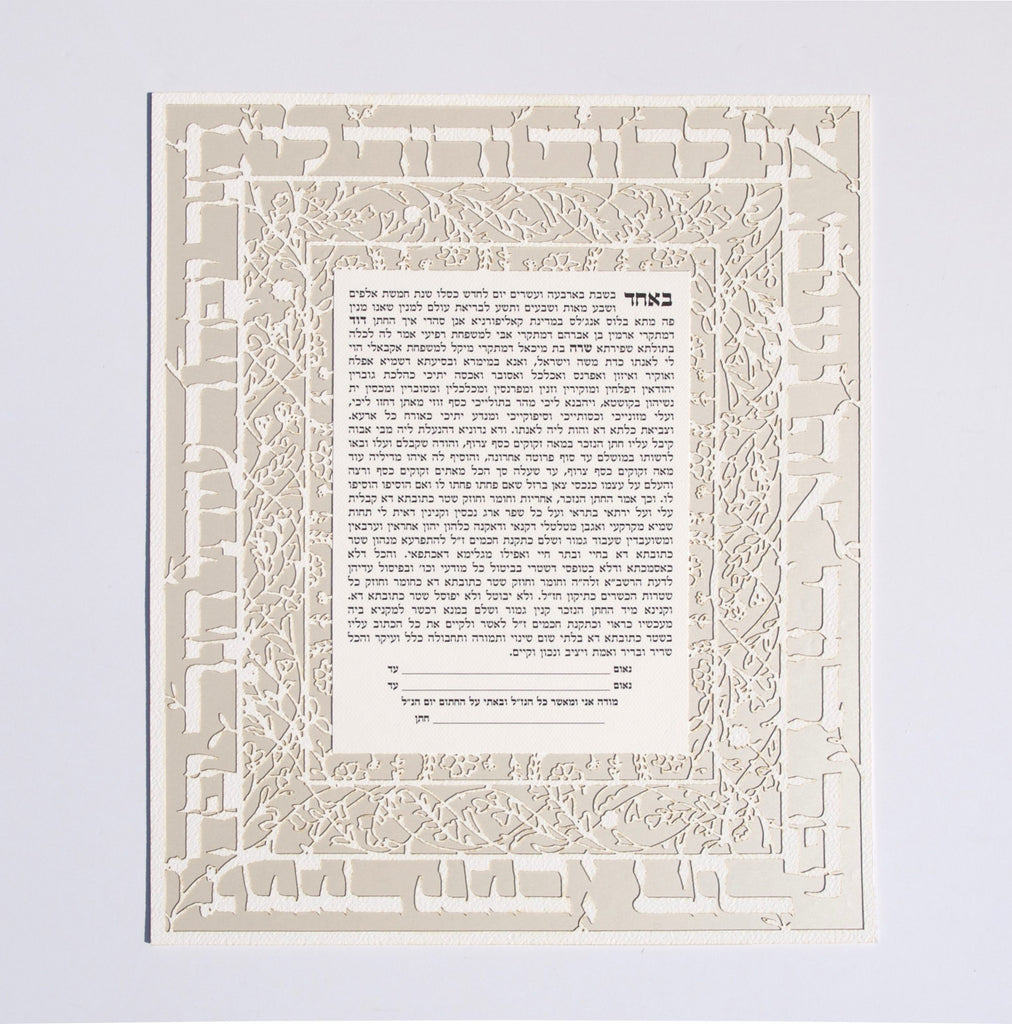 אני לדודי ודודי לי
באחד בשבת בארבעה ועשרים יום לחדש כסלו שנת חמשת אלפים
ושבע מאות ושבעים ותשע לבריאת עולם למנין שאנו מנין
פה מתא בלוס אנג'לס במדינת קאליפורניא אנן סהדי איך החתן דוד
דמתקרי ארמין בן אברהם דמתקרי אבי למשפחת רפיעי אמר לה לכלה
בתולתא שפירתא שרה בת מיכאל דמתקרי מיקל למשפחת אקבאלי הוי
לי לאנתו כדת משה וישראל, ואנא במימרא ובסיעתא דשמיא אפלח
ואוקיר ואיזון ואפרנס ואכלכל ואסובר ואכסה יתיכי כהלכת גוברין
יהודאין דפלחין ומוקירין וזנין ומפרנסין ומכלכלין ומסוברין ומכסין ית
נשיהון בקושטא, ויהבנא ליכי מהר בתולייכי כסף זוזי מאתן דחזו ליכי,
ועלי מזונייכי וכסותייכי וסיפוקייכי ומנדע יתיכי כאורח כל ארעא.
וצביאת כלתא דא והות ליה לאנתו. ודא נדוניא דהנעלת ליה מבי אבוה
קיבל עליו חתן הנזכר במאה זקוקים כסף צרוף, והודה שקבלם ועלו ובאו
לרשותו במושלם עד סוף פרוטה אחרונה, והוסיף לה איהו מדיליה עוד
מאה זקוקים כסף צרוף, עד שעלה סך הכל מאתים זקוקים כסף ורצה
והעלם על עצמו כנכסי צאן ברזל שאם פחתו פחתו לו ואם הוסיפו הוסיפו
לו. וכך אמר החתן הנזכר, אחריות וחומר וחוזק שטר כתובתא דא קבלית
עלי ועל ירתאי בתראי ועל כל שפר ארג נכסין וקנינין דאית לי תחות
שמיא מקרקעי ואגבן מטלטלי דקנאי ודאקנה כלהון יהון אחראין וערבאין
ומשועבדין שעבוד גמור ושלם כתקנת חכמים ז"ל להתפרעא מנהון שטר
כתובתא דא בחיי ובתר חיי ואפילו מגלימא דאכתפאי. והכל דלא
כאסמכתא ודלא כטופסי דשטרי בביטול כל מודעי וכו' ובפיסול עדיהן
לדעת הרשב"א זלה"ה וחומר וחוזק שטר כתובתא דא כחומר וחוזק כל
שטרות הכשרים כתיקון חז"ל. ולא יבוטל ולא יפוסל שטר כתובתא דא.
וקנינא מיד החתן הנזכר קנין גמור ושלם במנא דכשר למקניא ביה
מעכשיו כראוי וכתקנת חכמים ז"ל לאשר ולקיים את כל הכתוב עליו
בשטר כתובתא דא בלתי שום שינוי ותמורה ותחבולה כלל ועיקר והכל
שריר ובריר ואמת ויציב ונכון וקיים.
נאום ____________________ עד
נאום ____________________ עד
מודה אני ומאשר כל הנז"ל ובאתי על החתום יום הנ"ל
____________________ חתן